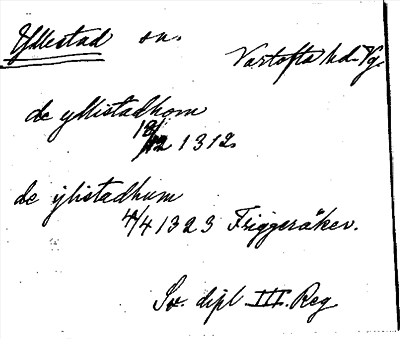 Yllestad sn.
Vartofta hd. Vg.
de yllistadhom
12/12 1312
de ylistadhum
4/4 1323 Friggeråker.
Sv. dipl III. Reg